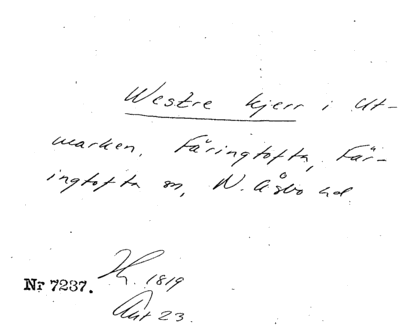 Westre kjerr i Ut-
marken, Färingtofta, Fär-
ingtofta sn, N. Åsbo hd
Nr 7237.
1819
Akt 23.